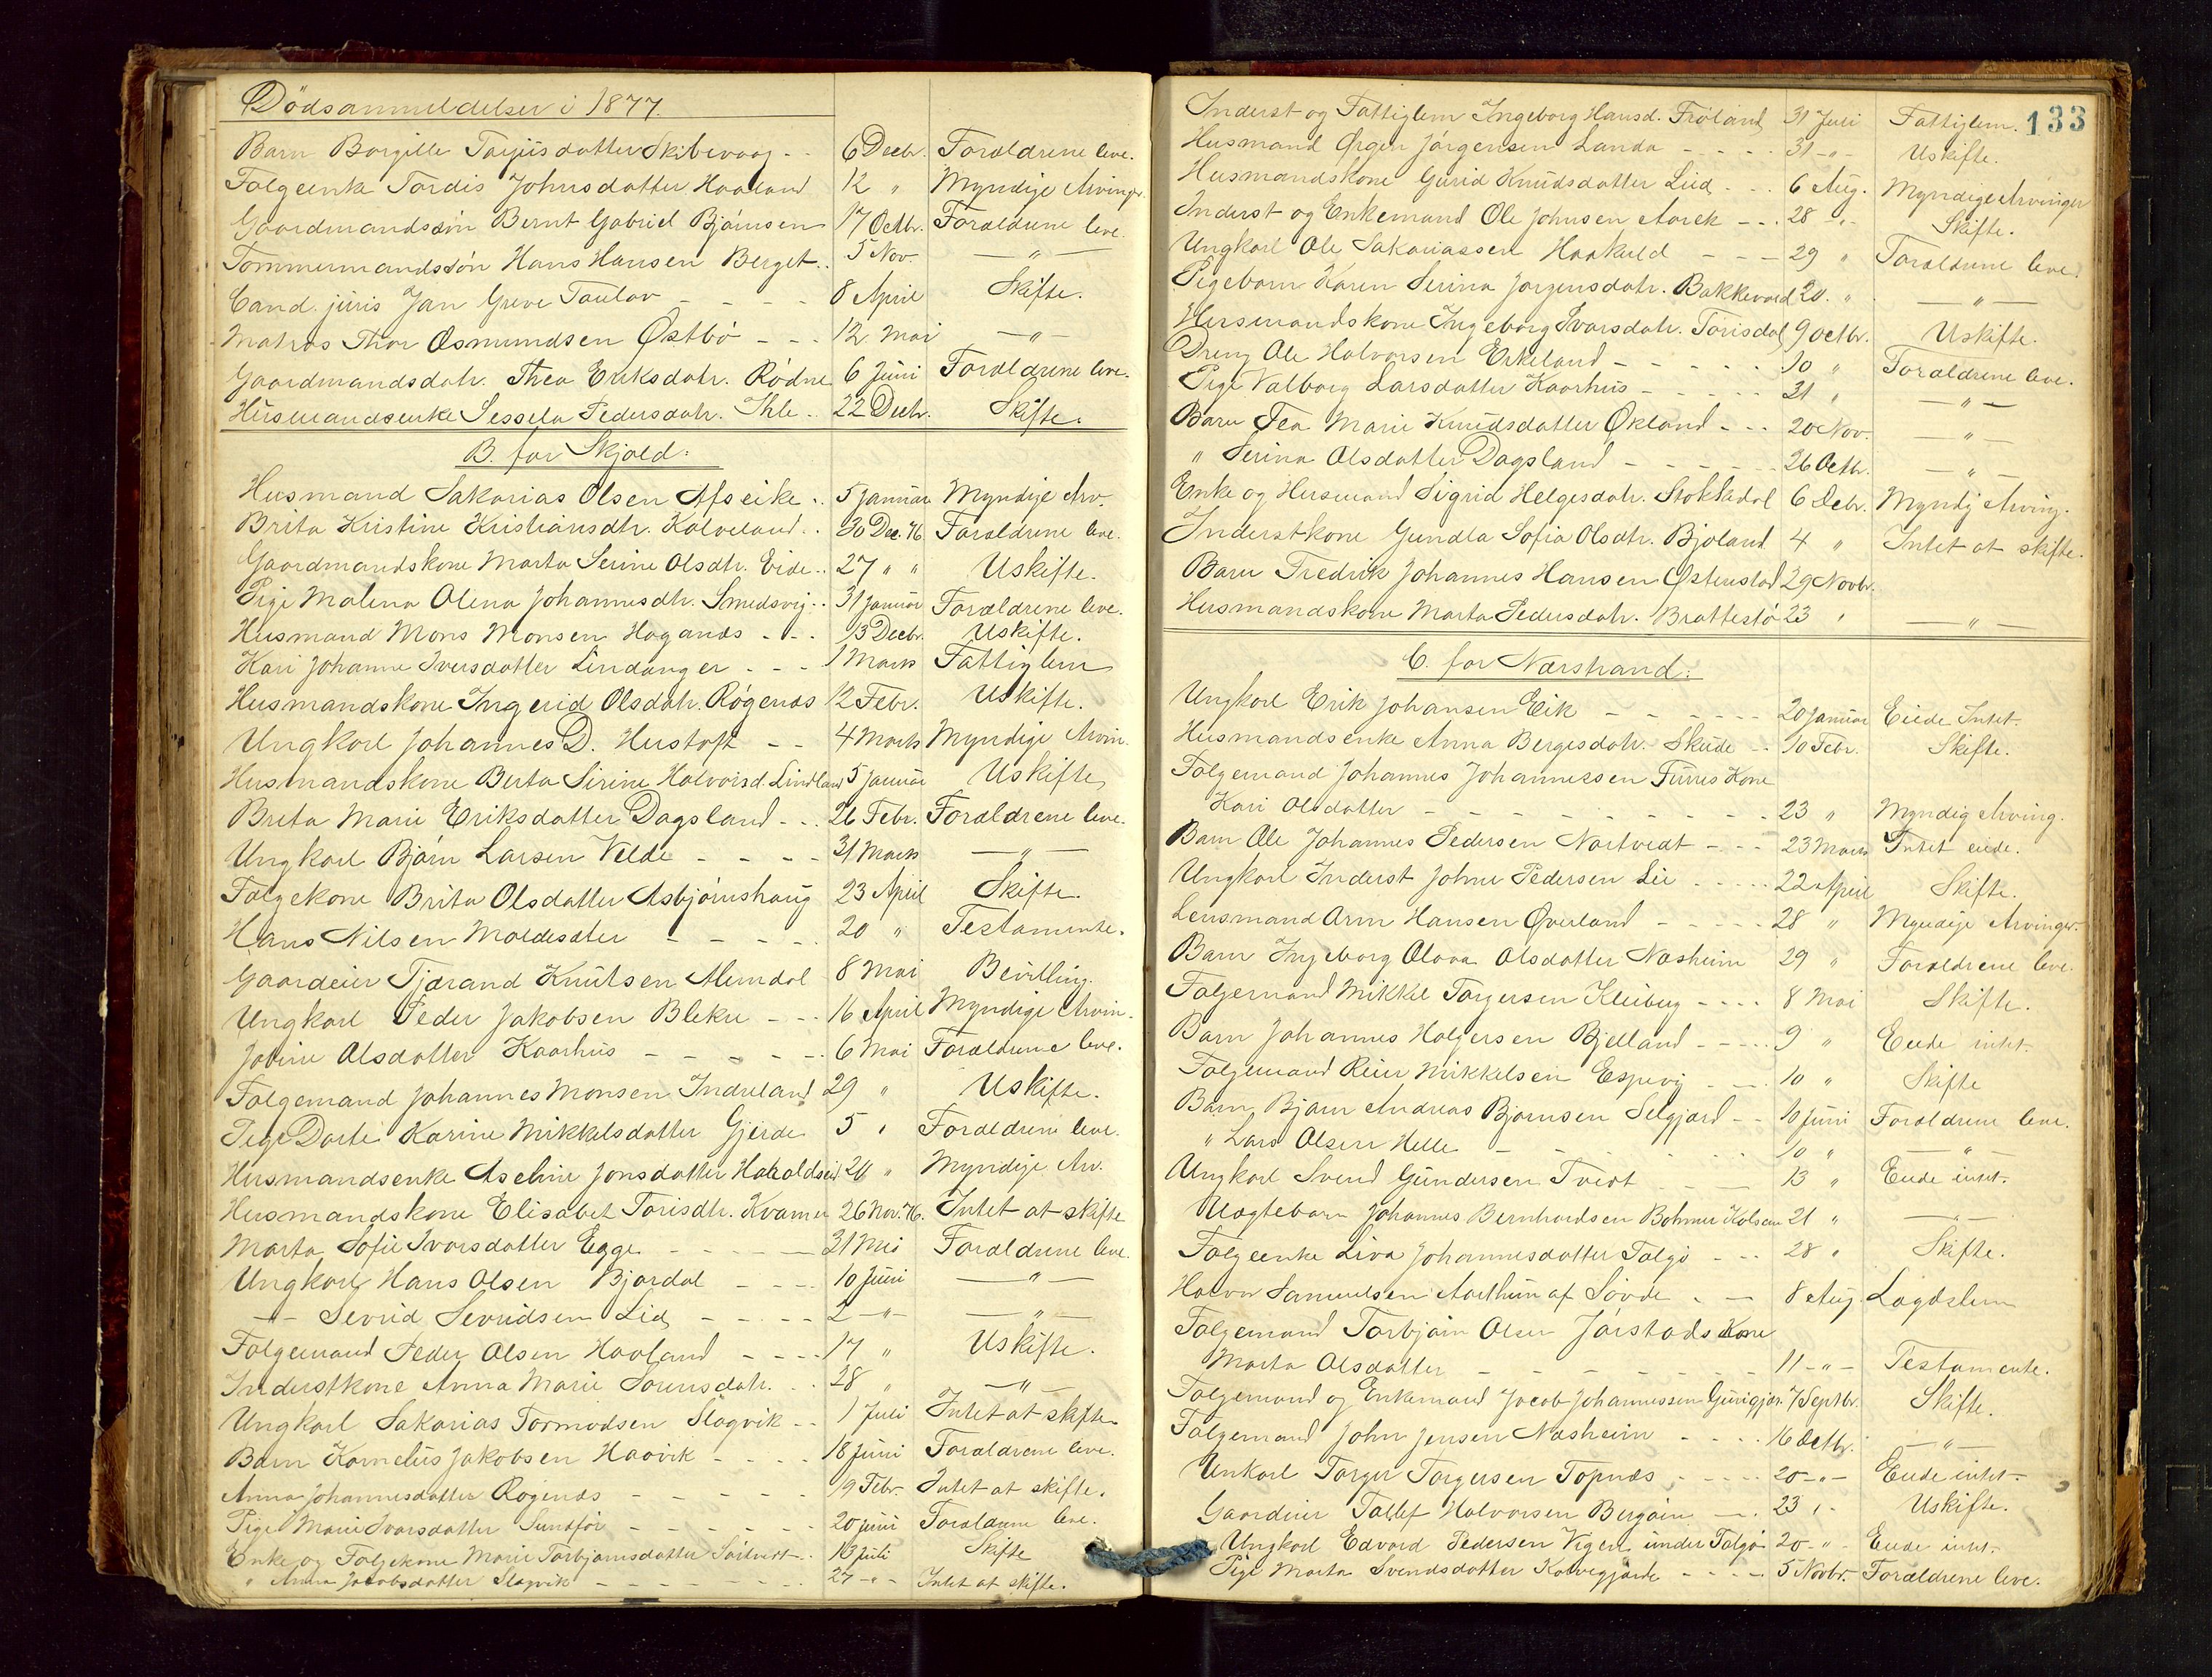 Dödsanmeldelser i 1877.
Barn Borgille Tarjiisdatter Skibevaag - - 6 Decbr. Forældrene leve.
Folgeenke Tordis Johnsdatter Haaland 12 " Myndige Arvinger.
Gaardmandssön Bernt Gabriel Bjórnsen 17 Octbr. Forældrene leve.
Tommermandssön Hans Hansen Berget.. 5 Nov. — " —
Cand. juris Jan Greve Taulov - - - - 8 April Skifte.
Matros Thor Osmundsen Østbó - - - 12 Mai — " —
Gaardmandsdatr. Thea Eriksdatr. Ródne 6 Juni Forældrene leve.
Husmandsenke Sessela Pedersdatr. Ihle.. 22 Decbr. Skifte.
B. for Skjold:
Husmand Sakarias Olsen Alfseike.. 5 Januar Myndige Arv.
Brita Kristine Kristiansdtr. Kalveland.. 30 Dec. 76 Forældrene leve.
Gaardmandskone Marta Serine Olsdtr. Eide.. 27 " " Uskifte.
Pige Malena Olena Johannesdtr. Smedsvig.. 31 Januar Forældrene leve.
Husmand Mons Monsen Haganæs - - - 13 Decbr. Uskifte.
Kari Johanne Iversdatter Lindanger - - - 1 Marts Fattiglem
Husmandskone Ingerid Olsdatr. Rógenæs 12 Febr. Uskifte.
Ungkarl Johannes D. Hustoft - - 4 Marts Myndige Arvin.
Husmandskone Berta Sirine Halvorsd. Lindland 5 Januar Uskifte
Breta Marie Eriksdatter Dagsland - - . 26 Febr. Forældrene leve.
Ungkarl Bjórn Larsen Velde - - - - 31 Marts — " —
Folgekone Brita Olsdatter Asbjórnshaug 23 April Skifte.
Hans Nilsen Moldesæter - - - - 20 " Testamente.
Gaardeier Tjærand Knutsen Alemdal 8 Mai Bevilling.
Ungkarl Peder Jakobsen Blekre - - - 16 April Myndige Arvin.
Jobine Olsdatter Kaarhus - - - - - 6 Mai Forældrene leve.
Folgemand Johannes Monsen Indreland 29 " Uskifte.
Pige Dorte Karine Mikkelsdatter Gjerde 5 " Forældrene leve.
Husmandsenke Aseline Jonsdatter Haraldseid 20 " Myndige Arv.
Husmandskone Elisabet Torisdtr. Kvamen 26 Nov. 76. Intet at skifte
Marta Sofie Ivarsdatter Egge - - - - 31 Mai Forældrene leve.
Ungkarl Hans Olsen Bjordal - - - - 10 Juni — " —
— " — Sevrid Sevridsen Lid - - - - 2 - " - — " —
Folgemand Peder Olsen Haaland - - - - 17 " Uskifte.
Inderstkone Anna Marie Sorensdatr. - - 28 " — " —
Ungkarl Sakarias Tormodsen Slagvik - - 1 Juli Intet at skifte
Barn Kornelius Jakobsen Haavik - - - - 18 Juni Forældrene leve.
Anna Johannesdatter Rógenæs - - - - - 19 Febr. Intet at skifte.
Pige Marie Ivarsdatter Sundfór - - - - - 20 Juni Forældrene leve.
Enke og Folgekone Marie Torbjórnsdatter .. 13 Juli Skifte
" Anna Jacobsdatter Slagvik - - - - - - 27 - " - Intet at skifte.
133
Inderst og Fattiglem Ingeborg Hansd. Fróland 31 Juli Fattiglem.
Husmand Órgen Jórgensen Landa - - - - 31 - " - Uskifte.
Husmandskone Gurid Knudsdatter Lied - - - 6 Aug. Myndige Arvinger
Inderst og Enkemand Ole Johnsen Aarek - - . 28 - " - Skifte.
Ungkarl Ole Sakariassen Haakuld - - - 29 " Forældrene leve.
Pigebarn Karen Serina Jorgensdatr. Bakkevold 20. " — " —
Husmandskone Ingeborg Ivarsdatr. Torisdal 9 Octbr. Uskifte.
Dreng Ole Halvorsen Erkeland - - - - - 10 " Forældrene leve.
Pige Valborg Larsdatter Kaarhus - - - - - 31 " — " —
Barn Tea Marie Knudsdatter Økland - - - 20 Nov. — " —
" Serina Olsdatter Dagsland - - - - - - 26 Octbr. — " —
Enke og Husmand Sigrid Helgesdatr. Stokkadal 6 Debr. Myndig Arving.
Inderstkone Gundla Sofia Olsdtr. Bjoland 4 " Intet at skifte.
Barn Fredrik Johannes Hansen Østenstad 29 Novbr.
Husmandskone Marta Pedersdatr. Brattestó 23 " — " —
C. for Nærstrand:
Ungkarl Erik Johansen Eik - - - - - - 20 Januar Eiede Intet.
Husmandsenke Anna Bergesdatr. Skeide - - 10 Febr. Skifte.
Folgemand Johannes Johannessen Furres Kone
Kari Olsdatter - - - - - - - - - - 23 " Myndig Arving.
Barn Ole Johannes Pedersen Nortvedt - - - 23 Marts Intet eiede.
Ungkarl Inderst Johne Pedersen Lie - - - - - 22 April Skifte.
Lensmand Arm Hansen Øverland - - - - - 28 " Myndige Arvinger.
Barn Ingeborg Olava Olsdatter Næsheim 29 " Forældrene leve.
Folgemand Mikkel Torgersen Kleiberg - - - - 8 Mai Skifte.
Barn Johannes Holgersen Bjelland - - - - - 9 " Eiede intet.
Folgemand Reier Mikkelsen Espevig - - - 10 " Skifte
Barn Bjørn Andreas Bjørnsen Selgjærd - - 10 Juni Forældrene leve.
" Lars Olsen Helle - - - - - - - 10 " — " —
Ungkarl Svend Gundersen Tveit - - — 13 " Eiede intet.
Uægtebarn Johannes Bernhardsen Bohmer Kolsen 21 " — " —
Folgeenke Liva Johannesdatter Talgó - - - 28 " Skifte.
Halvor Samuelsen Aarthun af Sóvde . — 8 Aug. Lægdslem
Folgemand Torbjórn Olsen Járstads Kone
Marta Olsdatter - - - - - - - - 11 - " - Testamente.
Folgemand og Enkemand Jacob Johannessen 7 Septbr. Skifte.
Folgemand John Jensen Næsheim - - - - 16 Octbr. — " —
Unkarl Torger Torgersen Topnæs - - - - - 20 - " - Eiede intet.
Gaardeier Tollef Halvorsen Bergóin - - - . 23 " - Uskifte.
Ungkarl Edvard Pedersen Vigen under Talgó 20 - " - Eiede intet.
Pige Marta Svendsdatter Kalvegjærde - - - - 5 Novbr. Forældrene leve.